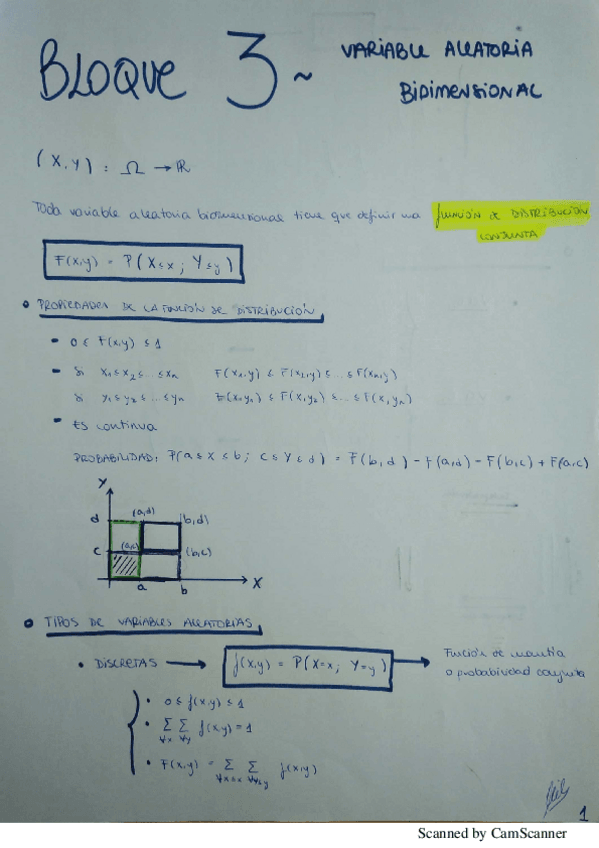 BLOQUE 3 ~ VARIABLE ALEATORIA
BIDIMENSIONAL
(X,Y) : Ω → ℝ
Toda variable aleatoria bidimensional tiene que definir una FUNCIÓN DE DISTRIBUCIÓN
CONJUNTA
F(x,y) = P(X≤x ; Y≤y)
• PROPIEDADES DE LA FUNCIÓN DE DISTRIBUCIÓN
- 0 ≤ F(x,y) ≤ 1
- Si x₁≤x₂≤...≤xₙ F(x₁,y) ≤ F(x₂,y) ≤ ... ≤ F(xₙ,y)
Si y₁≤y₂≤...≤yₙ F(x,y₁) ≤ F(x,y₂) ≤ ... ≤ F(x,yₙ)
- Es continua
PROBABILIDAD: P(a≤X≤b; c≤Y≤d) = F(b,d) - F(a,d) - F(b,c) + F(a,c)
Y
d (a,d) (b,d)
c (a,c) (b,c)
a b X
• TIPOS DE VARIABLES ALEATORIAS
• DISCRETAS → f(x,y) = P(X=x; Y=y) → Función de cuantía
o probabilidad conjunta
• 0 ≤ f(x,y) ≤ 1
• Σ∀x Σ∀y f(x,y) = 1
• F(x,y) = Σ∀x≤x Σ∀y≤y f(x,y)
1
Scanned by CamScanner